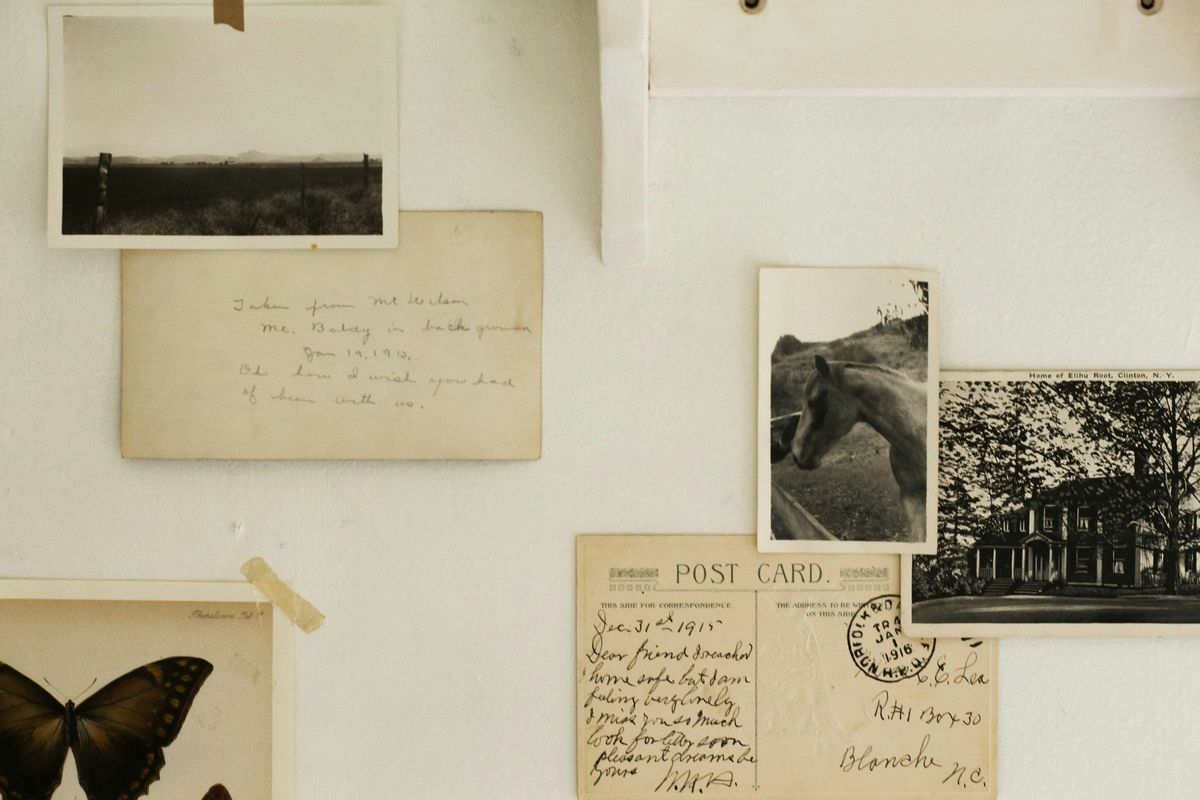 Taken from Mt Wilson
Mt. Baldy in background
Jan 19, 1913.
Oh how I wish you had
of been with us.
Home of Elihu Root, Clinton, N. Y.
POST CARD.
THIS SIDE FOR CORRESPONDENCE
Dec. 31st 1915
Dear friend I reached
home safe but I am
feeling very lonely
I miss you so much
look for letter soon
pleasant dreams be
yours
THE ADDRESS TO BE
ON THIS SIDE
NORFOLK & DA
TRA
JAN
1
1916
R.P.O.
C.E. Lea
R.#1 Box 30
Blanche N.C.